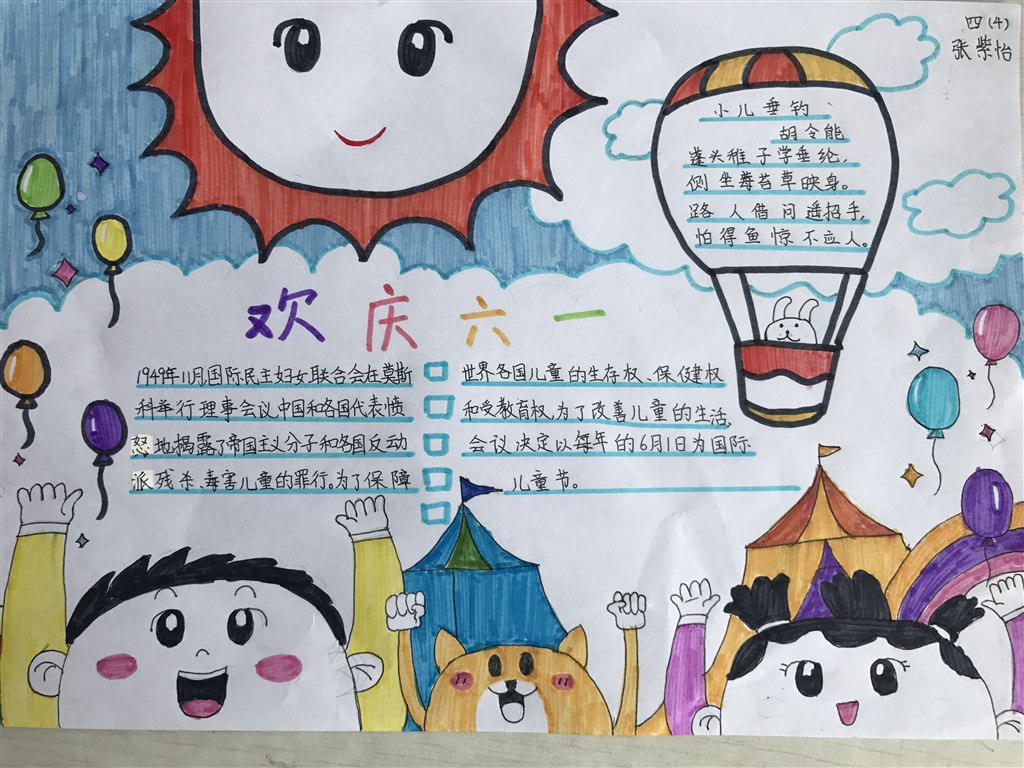 四(4)
张紫怡
小儿垂钓
胡令能
蓬头稚子学垂纶,
侧坐莓苔草映身。
路人借问遥招手,
怕得鱼惊不应人。
欢庆六一
1949年11月,国际民主妇女联合会在莫斯
科举行理事会议,中国和各国代表愤
怒地揭露了帝国主义分子和各国反动
派残杀、毒害儿童的罪行。为了保障
世界各国儿童的生存权、保健权
和受教育权,为了改善儿童的生活,
会议决定以每年的6月1日为国际
儿童节。